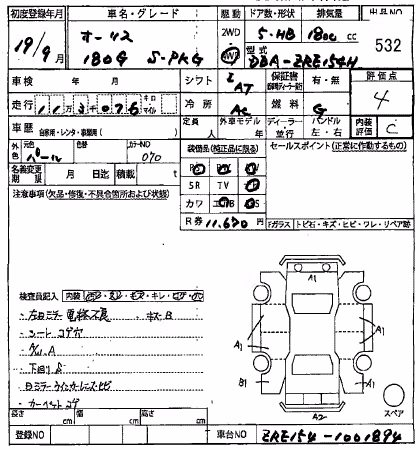 初度登録年月 車名・グレード 駆動 ドア数・形状 排気量 出品NO
19/9月 オーリス 2WD 5・HB 1800 cc 532
180G S-PKG 4WD 型式 DBA-ZRE154H
車検 年 月 シフト IAT 保証書 有・無 評価点
走行 113076 キロ マイル 冷房 AC 燃料 G 4
車歴 自家用・レンタ・事業用( ) 定員 人 外車モデル 年 ディーラー 並行 ハンドル 左・右 内装評価 C
外色 元色 パール 色替 カラーNO 070 装備品(純正品に限る) セールスポイント(正常に作動するもの)
名義変更期限 月 日迄 積載 t
注意事項(欠品・修復・不具合箇所および状態)
SR TV
カワ
R券 11,670 Fガラス トビ石・キズ・ヒビ・ワレ・リペア跡
A1
検査員記入 内装
・左ロミラー電格不良 キズB
・シート コゲ穴
A1 A1
・下回りS
B1 A1
・カーペットコゲ
スペア
A2
長さ cm 幅 cm 高さ cm
登録NO 車台NO ZRE154-1001894